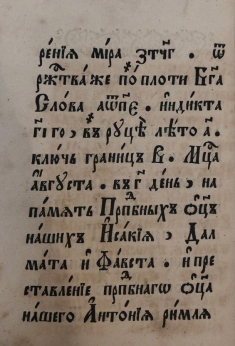 ренїѧ міра ҂зтч҃г . ѿ
ржⷭ҇тва же по плоти Бг҃а
Слова ҂аѿп҃є . индикта
гı҃ го , въ руцѣ лѣто а҃ .
ключь границъ в҃ . Мцⷭ҇а
а҆́вгꙋста . въ г҃ день , на
памѧть Прпⷣбныхъ ѻц҃ъ
нашихъ И҆са́кїѧ , Дал
мата и Фаѵста . и пре
ставленїе прпⷣбнагѡ ѻц҃а
нашего А҆нто́нїѧ римлѧ